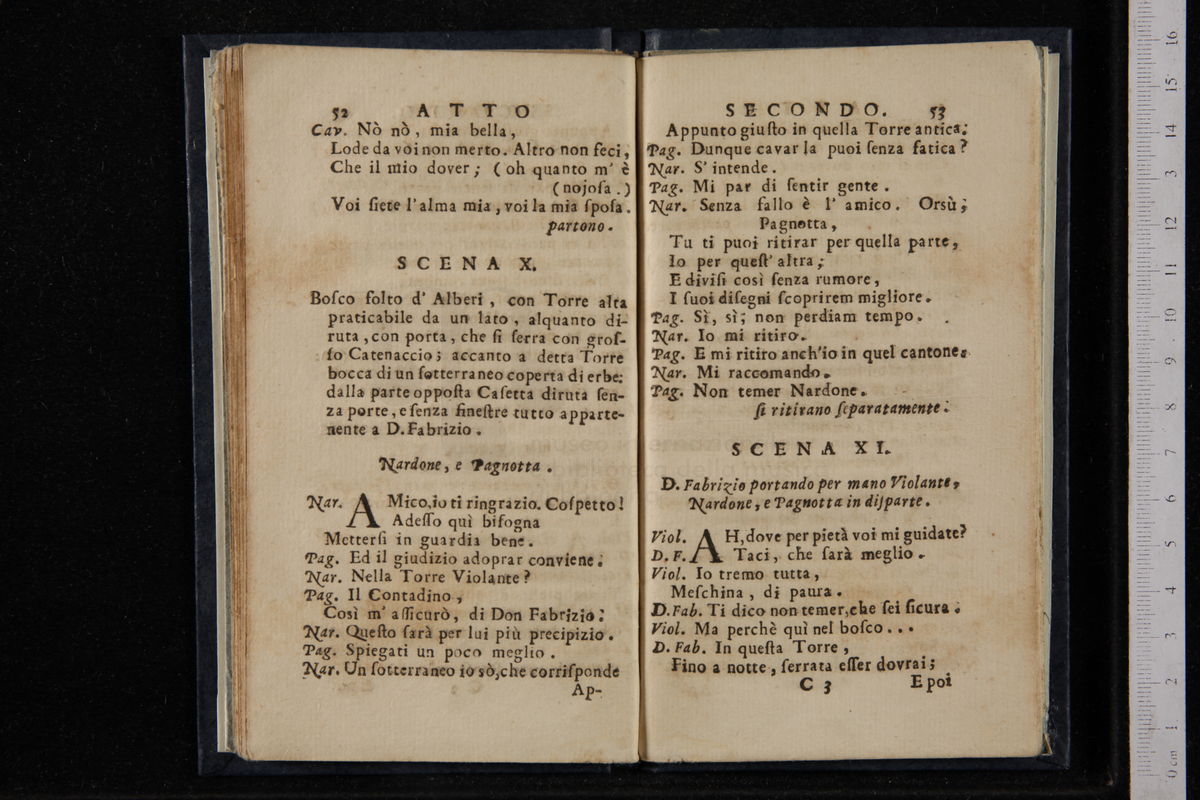 52 ATTO
Cav. Nò nò, mia bella,
Lode da voi non merto. Altro non feci,
Che il mio dover; (oh quanto m' è
(nojoſa.)
Voi ſiete l'alma mia, voi la mia ſpoſa.
partono.
SCENA X.
Boſco folto d' Alberi, con Torre alta
praticabile da un lato, alquanto di-
ruta, con porta, che ſi ſerra con groſ-
ſo Catenaccio; accanto a detta Torre
bocca di un ſotterraneo coperta di erbe:
dalla parte oppoſta Caſetta diruta ſen-
za porte, e ſenza fineſtre tutto apparte-
nente a D. Fabrizio.
Nardone, e Pagnotta.
Nar. AMico, io ti ringrazio. Coſpetto!
Adeſſo quì biſogna
Metterſi in guardia bene.
Pag. Ed il giudizio adoprar conviene.
Nar. Nella Torre Violante?
Pag. Il Contadino,
Così m' aſſicurò, di Don Fabrizio.
Nar. Queſto ſarà per lui più precipizio.
Pag. Spiegati un poco meglio.
Nar. Un ſotterraneo io sò, che corriſponde
Ap-
SECONDO. 53
Appunto giuſto in quella Torre antica.
Pag. Dunque cavarla puoi ſenza fatica?
Nar. S' intende.
Pag. Mi par di ſentir gente.
Nar. Senza fallo è l' amico. Orsù;
Pagnotta,
Tu ti puoi ritirar per quella parte,
Io per queſt' altra;
E diviſi così ſenza rumore,
I ſuoi diſegni ſcoprirem migliore.
Pag. Sì, sì; non perdiam tempo.
Nar. Io mi ritiro.
Pag. E mi ritiro anch'io in quel cantone.
Nar. Mi raccomando.
Pag. Non temer Nardone.
ſi ritirano ſeparatamente.
SCENA XI.
D. Fabrizio portando per mano Violante,
Nardone, e Pagnotta in diſparte.
Viol. AH, dove per pietà voi mi guidate?
D. F. Taci, che ſarà meglio.
Viol. Io tremo tutta,
Meſchina, di paura.
D. Fab. Ti dico non temer, che ſei ſicura.
Viol. Ma perchè quì nel boſco...
D. Fab. In queſta Torre,
Fino a notte, ſerrata eſſer dovrai;
C 3 E poi
0 cm 1 2 3 4 5 6 7 8 9 10 11 12 3 14 15 16